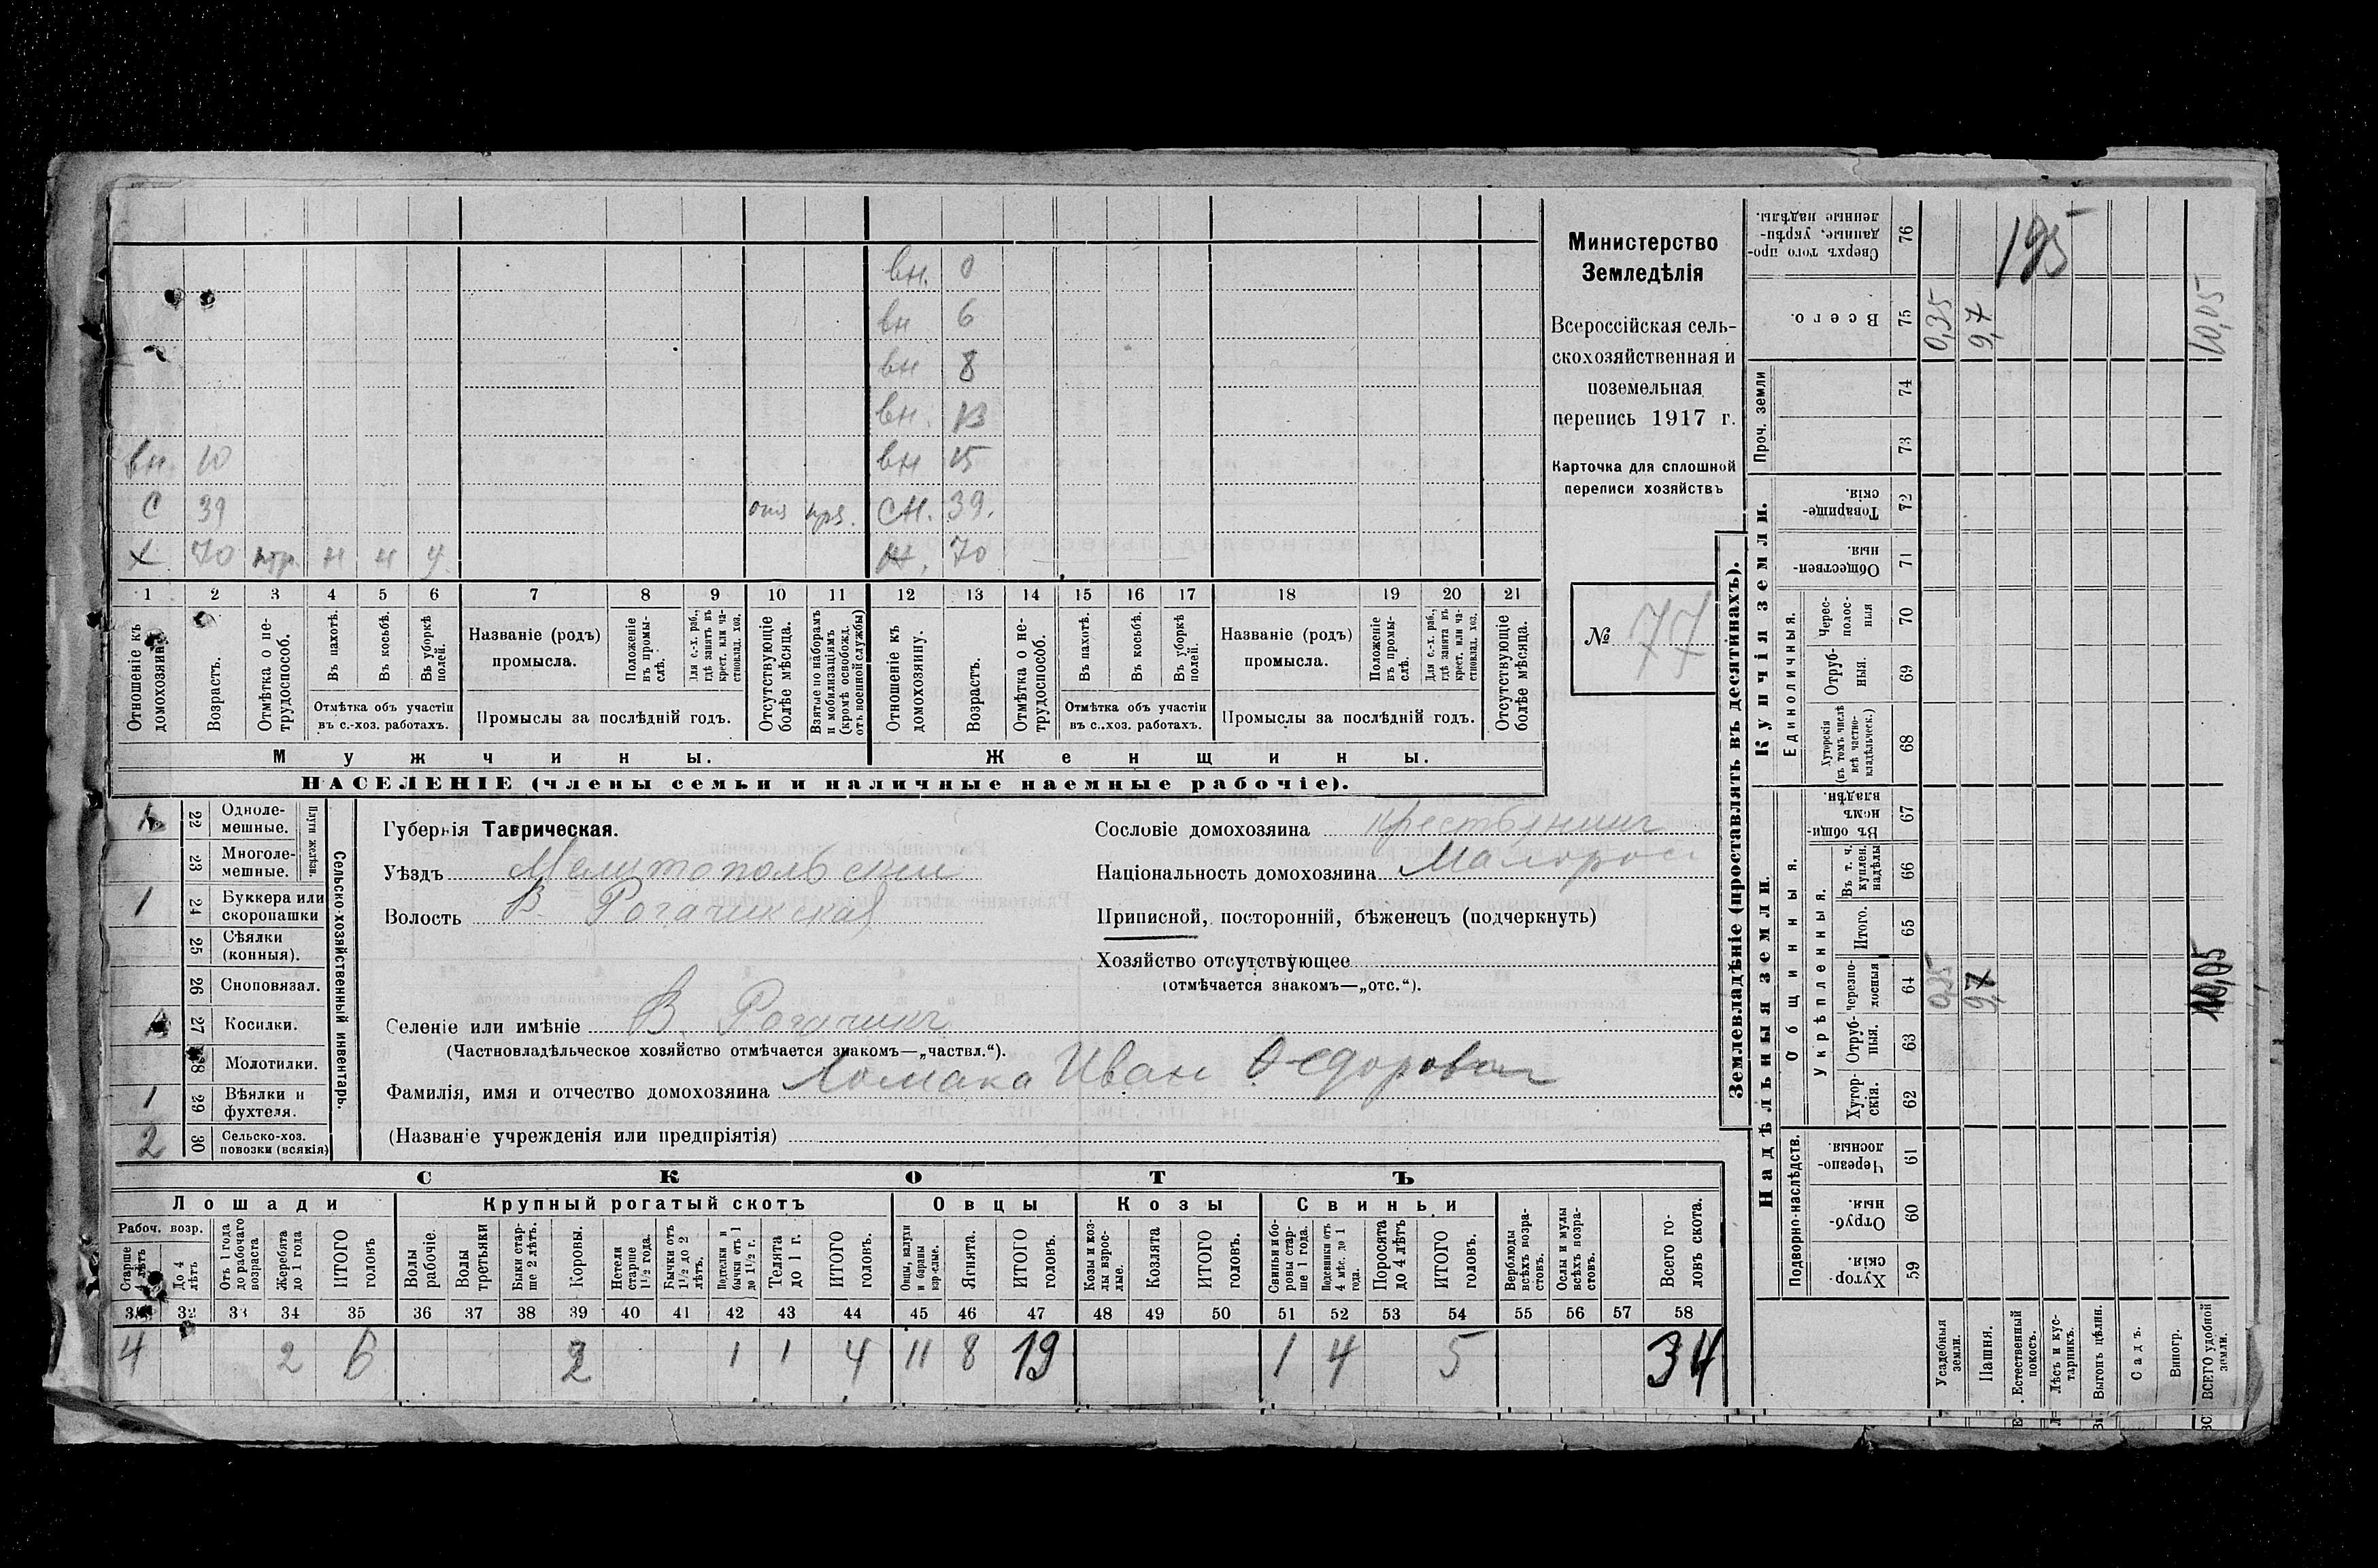 вн. 0
вн 6
вн 8
вн. 13
вн. 10 вн 15
С 39 отя нрз. СН. 39.
Х 70 нтр. н н У Ж. 70
1 2 3 4 5 6 7 8 9 10 11 12 13 14 15 16 17 18 19 20 21
Отношеніе къ домохозяину.
Возрастъ.
Отмѣтка о не-
трудоспособ.
Въ пахотѣ.
Въ косьбѣ.
Въ уборкѣ
полей.
Отмѣтка объ участіи
въ с.-хоз. работахъ.
Названіе (родъ)
промысла.
Положеніе
въ промы-
слѣ.
Для с.-х. раб.,
гдѣ занятъ въ
крест. или ча-
стновлад. хоз.
Промыслы за послѣдній годъ.
Отсутствующіе
болѣе мѣсяца.
Взятые по наборамъ
и мобилизаціямъ
(кромѣ освобожд.
отъ военной службы)
Отношеніе къ
домохозяину.
Возрастъ.
Отмѣтка о не-
трудоспособ.
Въ пахотѣ.
Въ косьбѣ.
Въ уборкѣ
полей.
Отмѣтка объ участіи
въ с..хоз. работахъ.
Названіе (родъ)
промысла.
Положеніе
въ промы-
слѣ.
Для с.-х. раб.,
гдѣ занята въ
крест. или ча-
стновлад. хоз.
Промыслы за послѣдній годъ.
Отсутствующіе
болѣе мѣсяца.
Мужчины.
Женщины.
НАСЕЛЕНІЕ (члены семьи и наличные наемные рабочіе).
Министерство
Земледѣлія
Всероссійская сель-
скохозяйственная и
поземельная
перепись 1917 г.
Карточка для сплошной
переписи хозяйствъ
№ 77
22 Одноле-
мешные.
23 Многоле-
мешные.
Плуги желѣзн.
1 24 Буккера или
скоропашки
25 Сѣялки
(конныя).
26 Сноповязал.
27 Косилки.
28 Молотилки.
1 29 Вѣялки и
фухтеля.
2 30 Сельско-хоз.
повозки (всякія)
Сельско-хозяйственный инвентарь.
Губернія Таврическая.
Уѣздъ Мелитопольскій
Волость В. Рогачикская
Селеніе или имѣніе В. Рогачикъ
(Частновладѣльческое хозяйство отмѣчается знакомъ—„частвл.“).
Фамилія, имя и отчество домохозяина Ломака Иван Ѳедоровъ
(Названіе учрежденія или предпріятія)
Сословіе домохозяина крестьянинъ
Національность домохозяина Малорос
Приписной, посторонній, бѣженецъ (подчеркнуть)
Хозяйство отсутствующее
(отмѣчается знакомъ—„отс.“).
СКОТЪ
Лошади
Крупный рогатый скотъ
Овцы
Козы
Свиньи
Рабоч. возр.
Старше
4 лѣтъ
До 4
лѣтъ
Отъ 1 года
до рабочаго
возраста
Жеребята
до 1 года
ИТОГО
головъ
Волы
рабочіе.
Волы
третьяки
Быки стар-
ше 2 лѣтъ.
Коровы.
Нетели
старше
1½ года.
Бычки отъ
1½ до 2
лѣтъ.
Подтелки и
бычки отъ 1
до 1½ г.
Телята
до 1 г.
ИТОГО
головъ.
Овцы, валухи
и бараны
взрослые.
Ягнята.
ИТОГО
головъ.
Козы и коз-
лы взрос-
лые.
Козлята
ИТОГО
головъ.
Свиньи и бо-
ровы стар-
ше 1 года.
Подсвинки отъ
4 мѣс. до 1
года.
Поросята
до 4 лѣтъ
ИТОГО
головъ.
Верблюды
всѣхъ возра-
стовъ.
Ослы и мулы
всѣхъ возра-
стовъ.
Всего го-
ловъ скота.
31 32 33 34 35 36 37 38 39 40 41 42 43 44 45 46 47 48 49 50 51 52 53 54 55 56 57 58
4 2 6 2 1 1 4 11 8 19 1 4 5 34
Землевладѣніе (проставлять въ десятинахъ).
Купчія земли.
Надѣльныя земли.
Сверхъ того про-
данные, укрѣп-
ленные надѣлы.
76
195
Всего.
75
0,35
9,7
10,05
Проч. земли
74
73
Товарище-
скія.
72
Обществен-
ныя.
71
Единоличныя.
Черес-
полос-
ныя
70
Отруб-
ныя.
69
Хуторскія
(въ томъ числѣ
всѣ частно-
владѣльческ.)
68
Общинныя.
Въ общин-
номъ
владѣн.
67
Укрѣпленныя.
Въ т. ч.
куплен.
надѣлы
66
Итого.
65
Черезпо-
лосныя
64
0,35
9,7
10,05
Отруб-
ныя.
63
Хутор-
скія.
62
Подворно-наслѣдств.
Черезпо-
лосныя
61
Отруб-
ныя.
60
Хутор-
скія.
59
Усадебныя
земли.
Пашня.
Естественный
покосъ.
Лѣсъ и кус-
тарникъ.
Выгонъ цѣлин.
Садъ.
Виногр.
ВСЕГО удобной
земли.